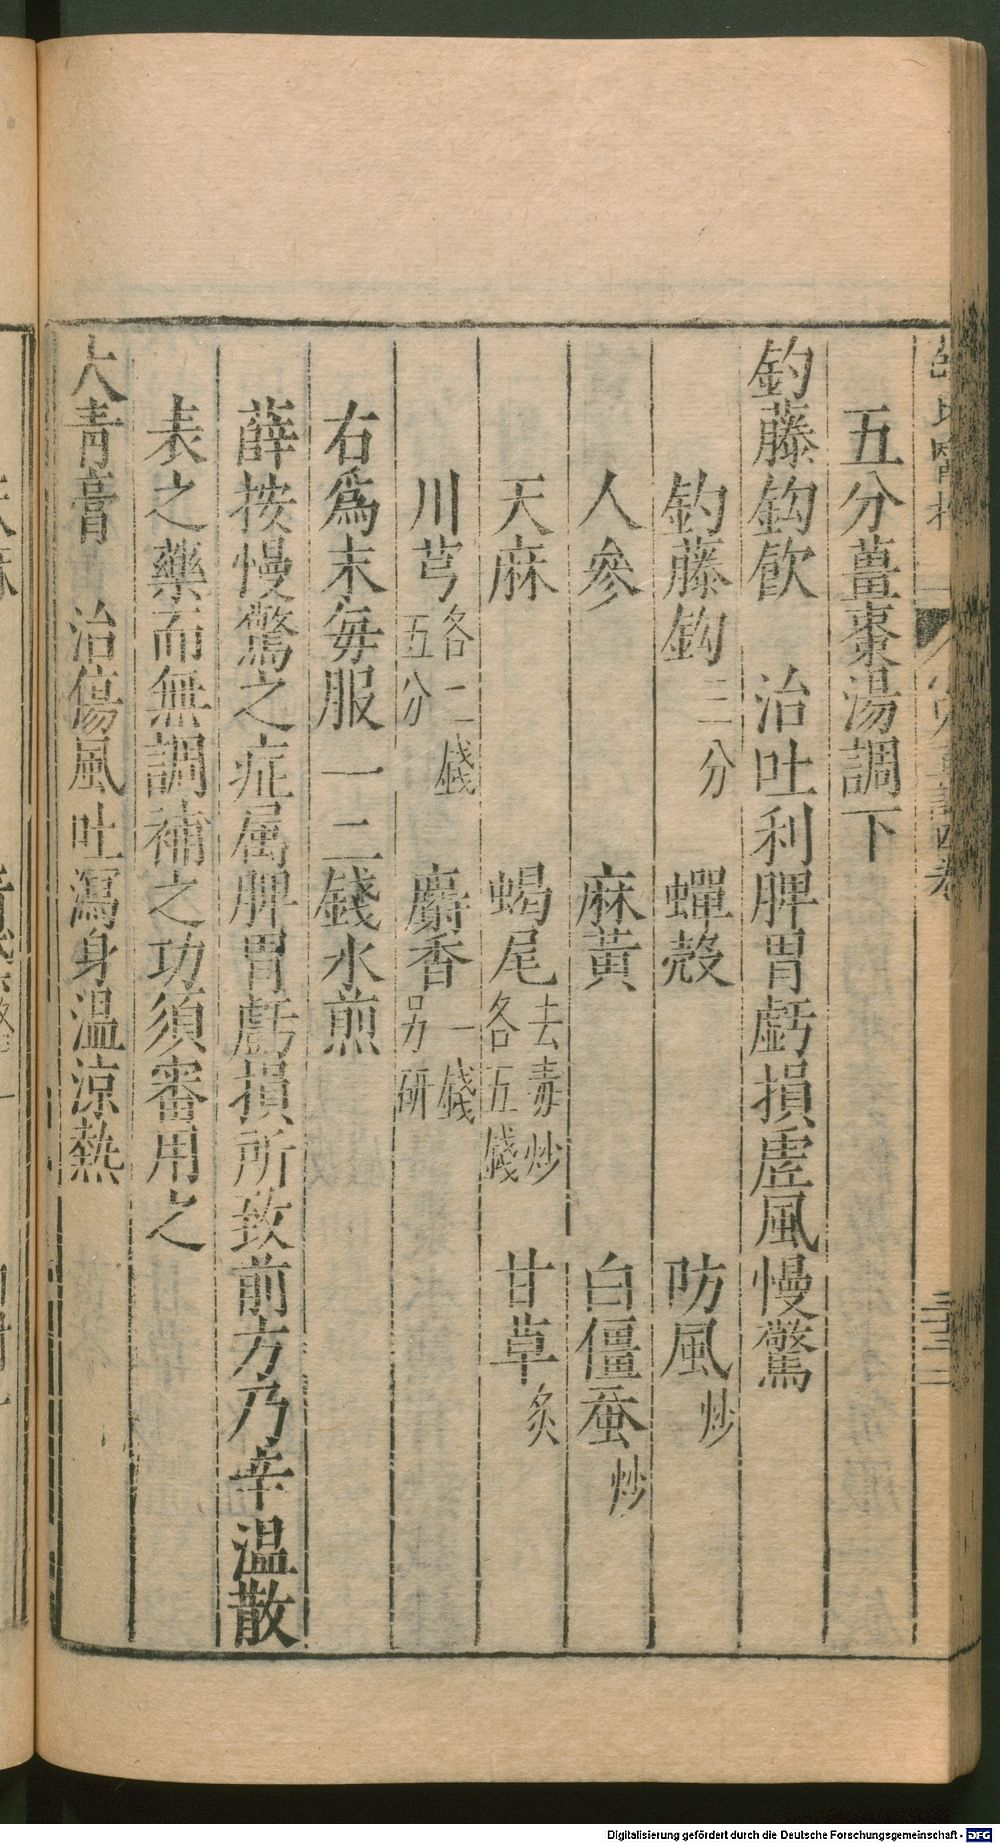 五分薑棗湯調下
釣藤鈎飲　治吐利脾胃虧損虛風慢驚
釣藤鈎三分　蟬殼　防風炒
人參　麻黃　白僵蚕炒
天麻　蝎尾去毒炒各五錢　甘草炙
川芎各二錢五分　麝香一錢另研
右爲末每服一二錢水煎
薛按慢驚之症属脾胃虧損所致前方乃辛温散
表之藥而無調補之功須審用之
大青膏　治傷風吐瀉身温涼熱
Digitalisierung gefördert durch die Deutsche Forschungsgemeinschaft - DFG